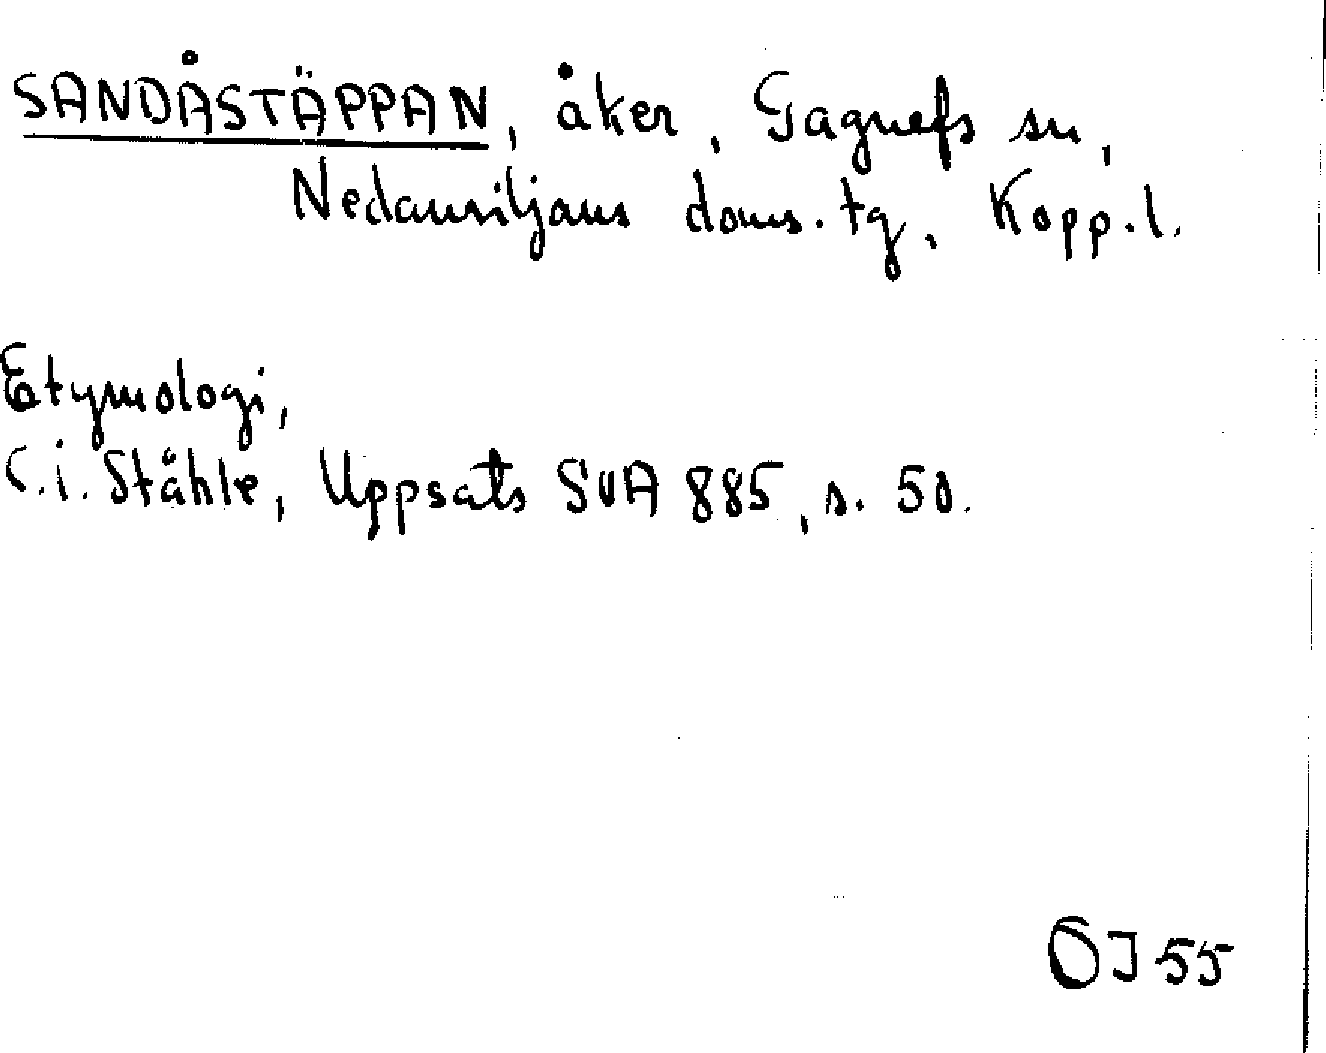 SANDÅSTÄPPAN, åker, Gagnefs sn,
Nedansiljans doms. tg, Kopp. l.
Etymologi,
C.I. Ståhle, Uppsats SVA 885, s. 50.
ÖJ 55